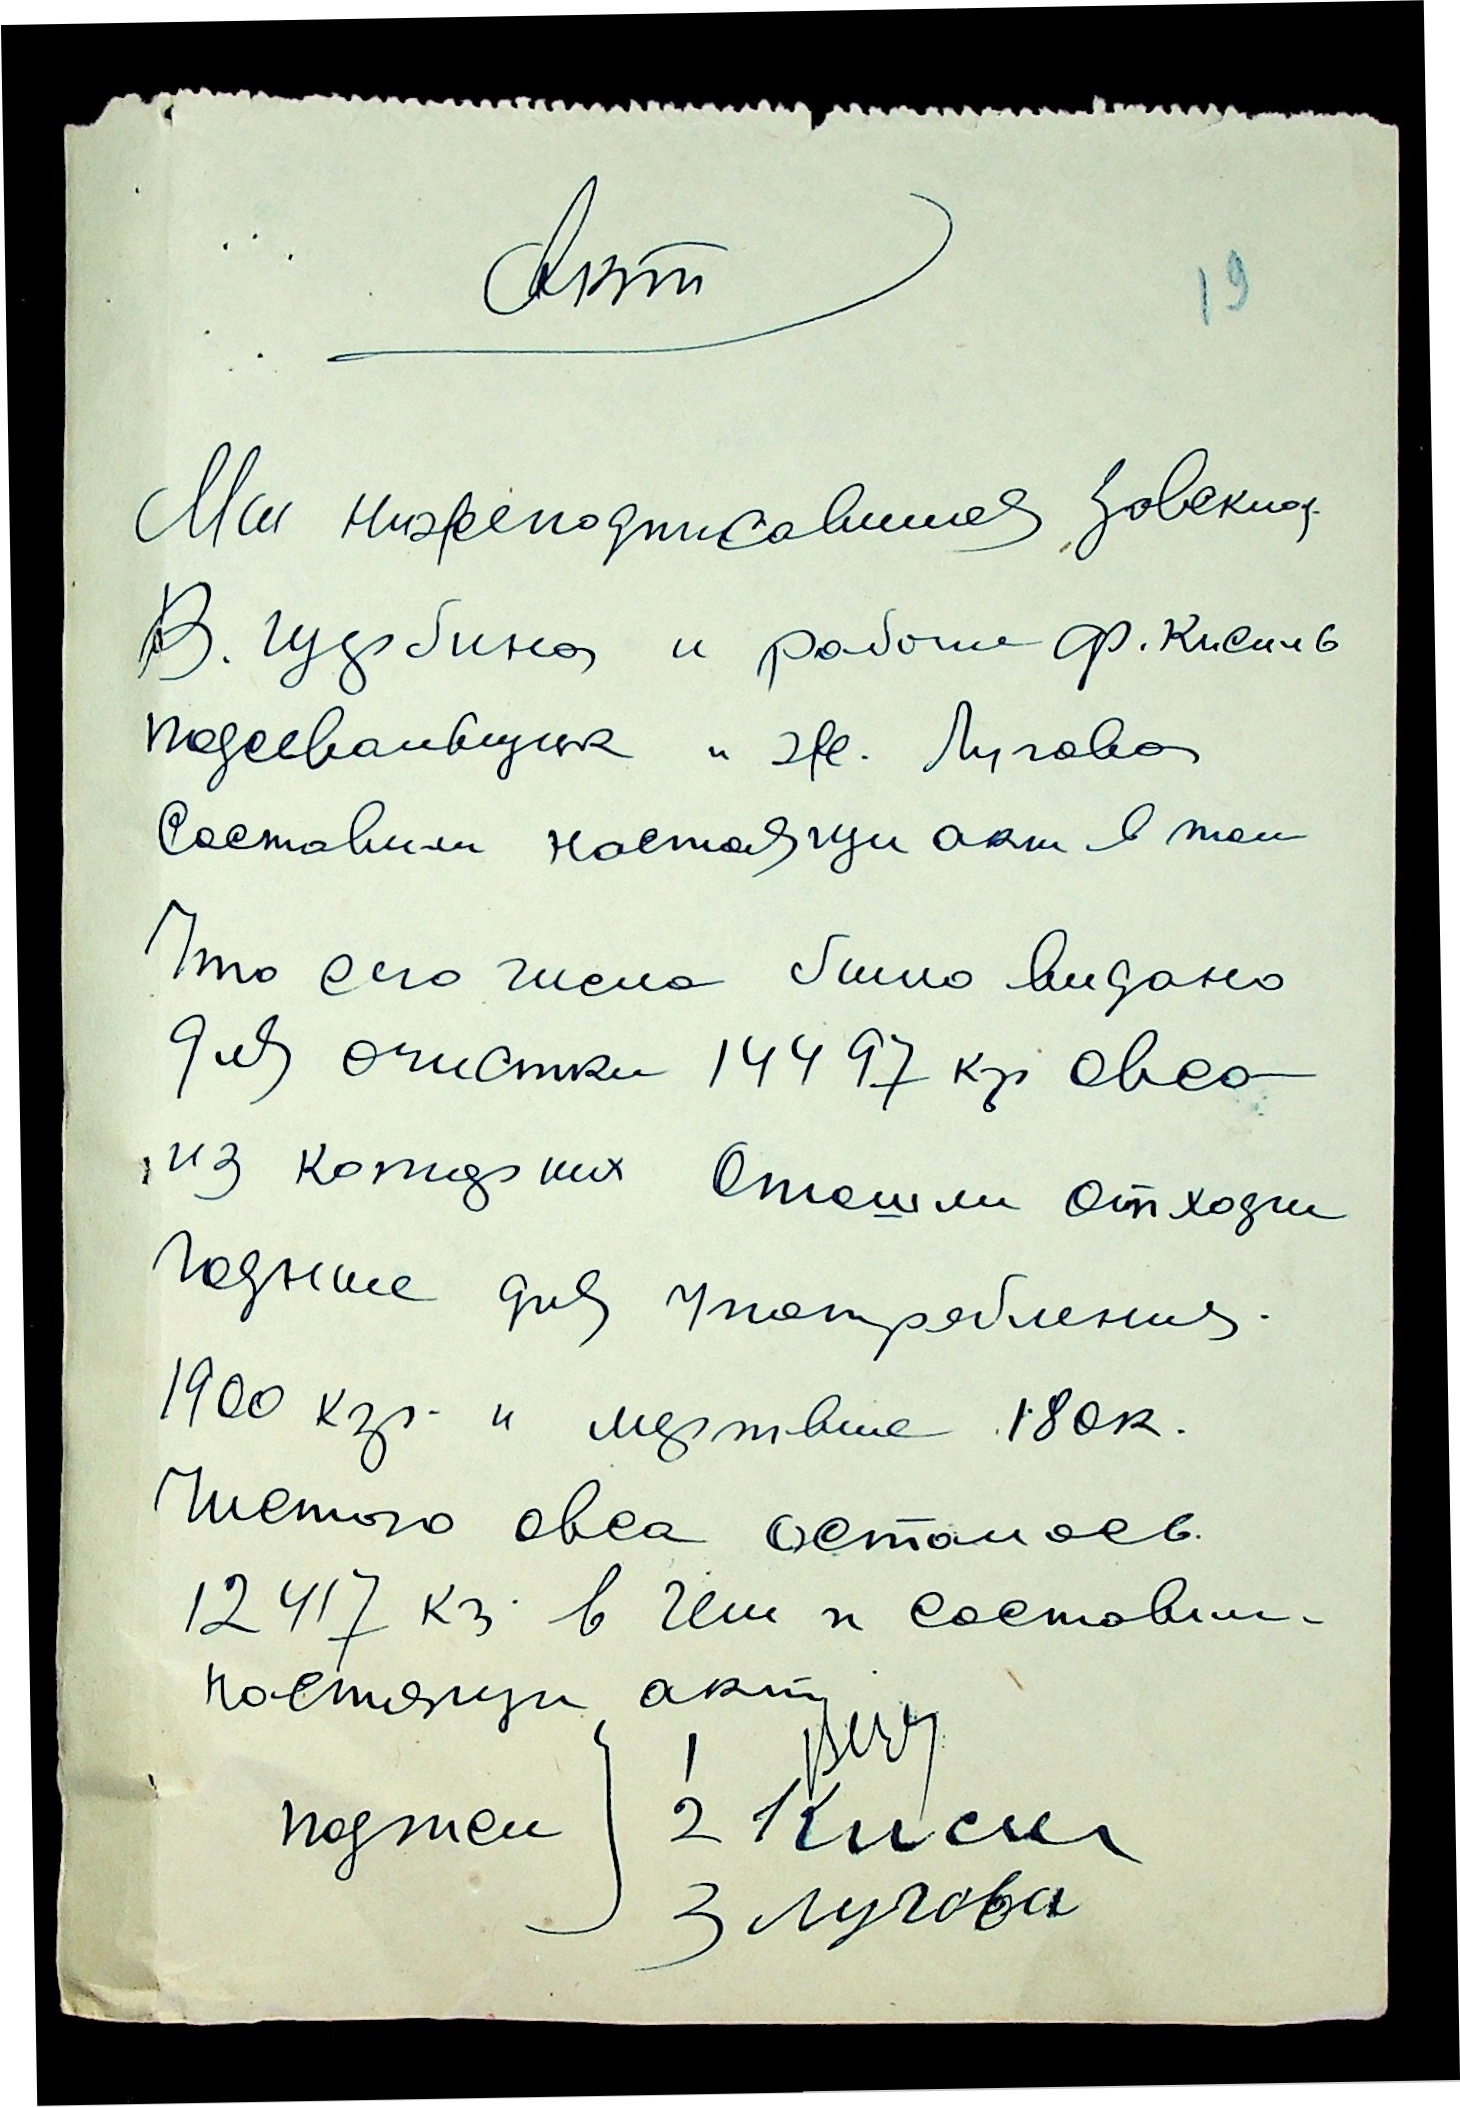 Акт
19
Мы нижеподписавшиеся Завсклад
В. Цурбина и рабочие Ф. Кисиль
подсевальщик и Же. Лугова
Составили настаящи акт в том
Что сего числа было видано
для очистки 14497 кгр овса
из котарых Отошли отходы
годные для употребления.
1900 кгр. и мертвые 180к.
Чистого овса осталось.
12417 кг. в чем и составили
настаящи акт
подписи 1
2 Кисил
3 Лугова